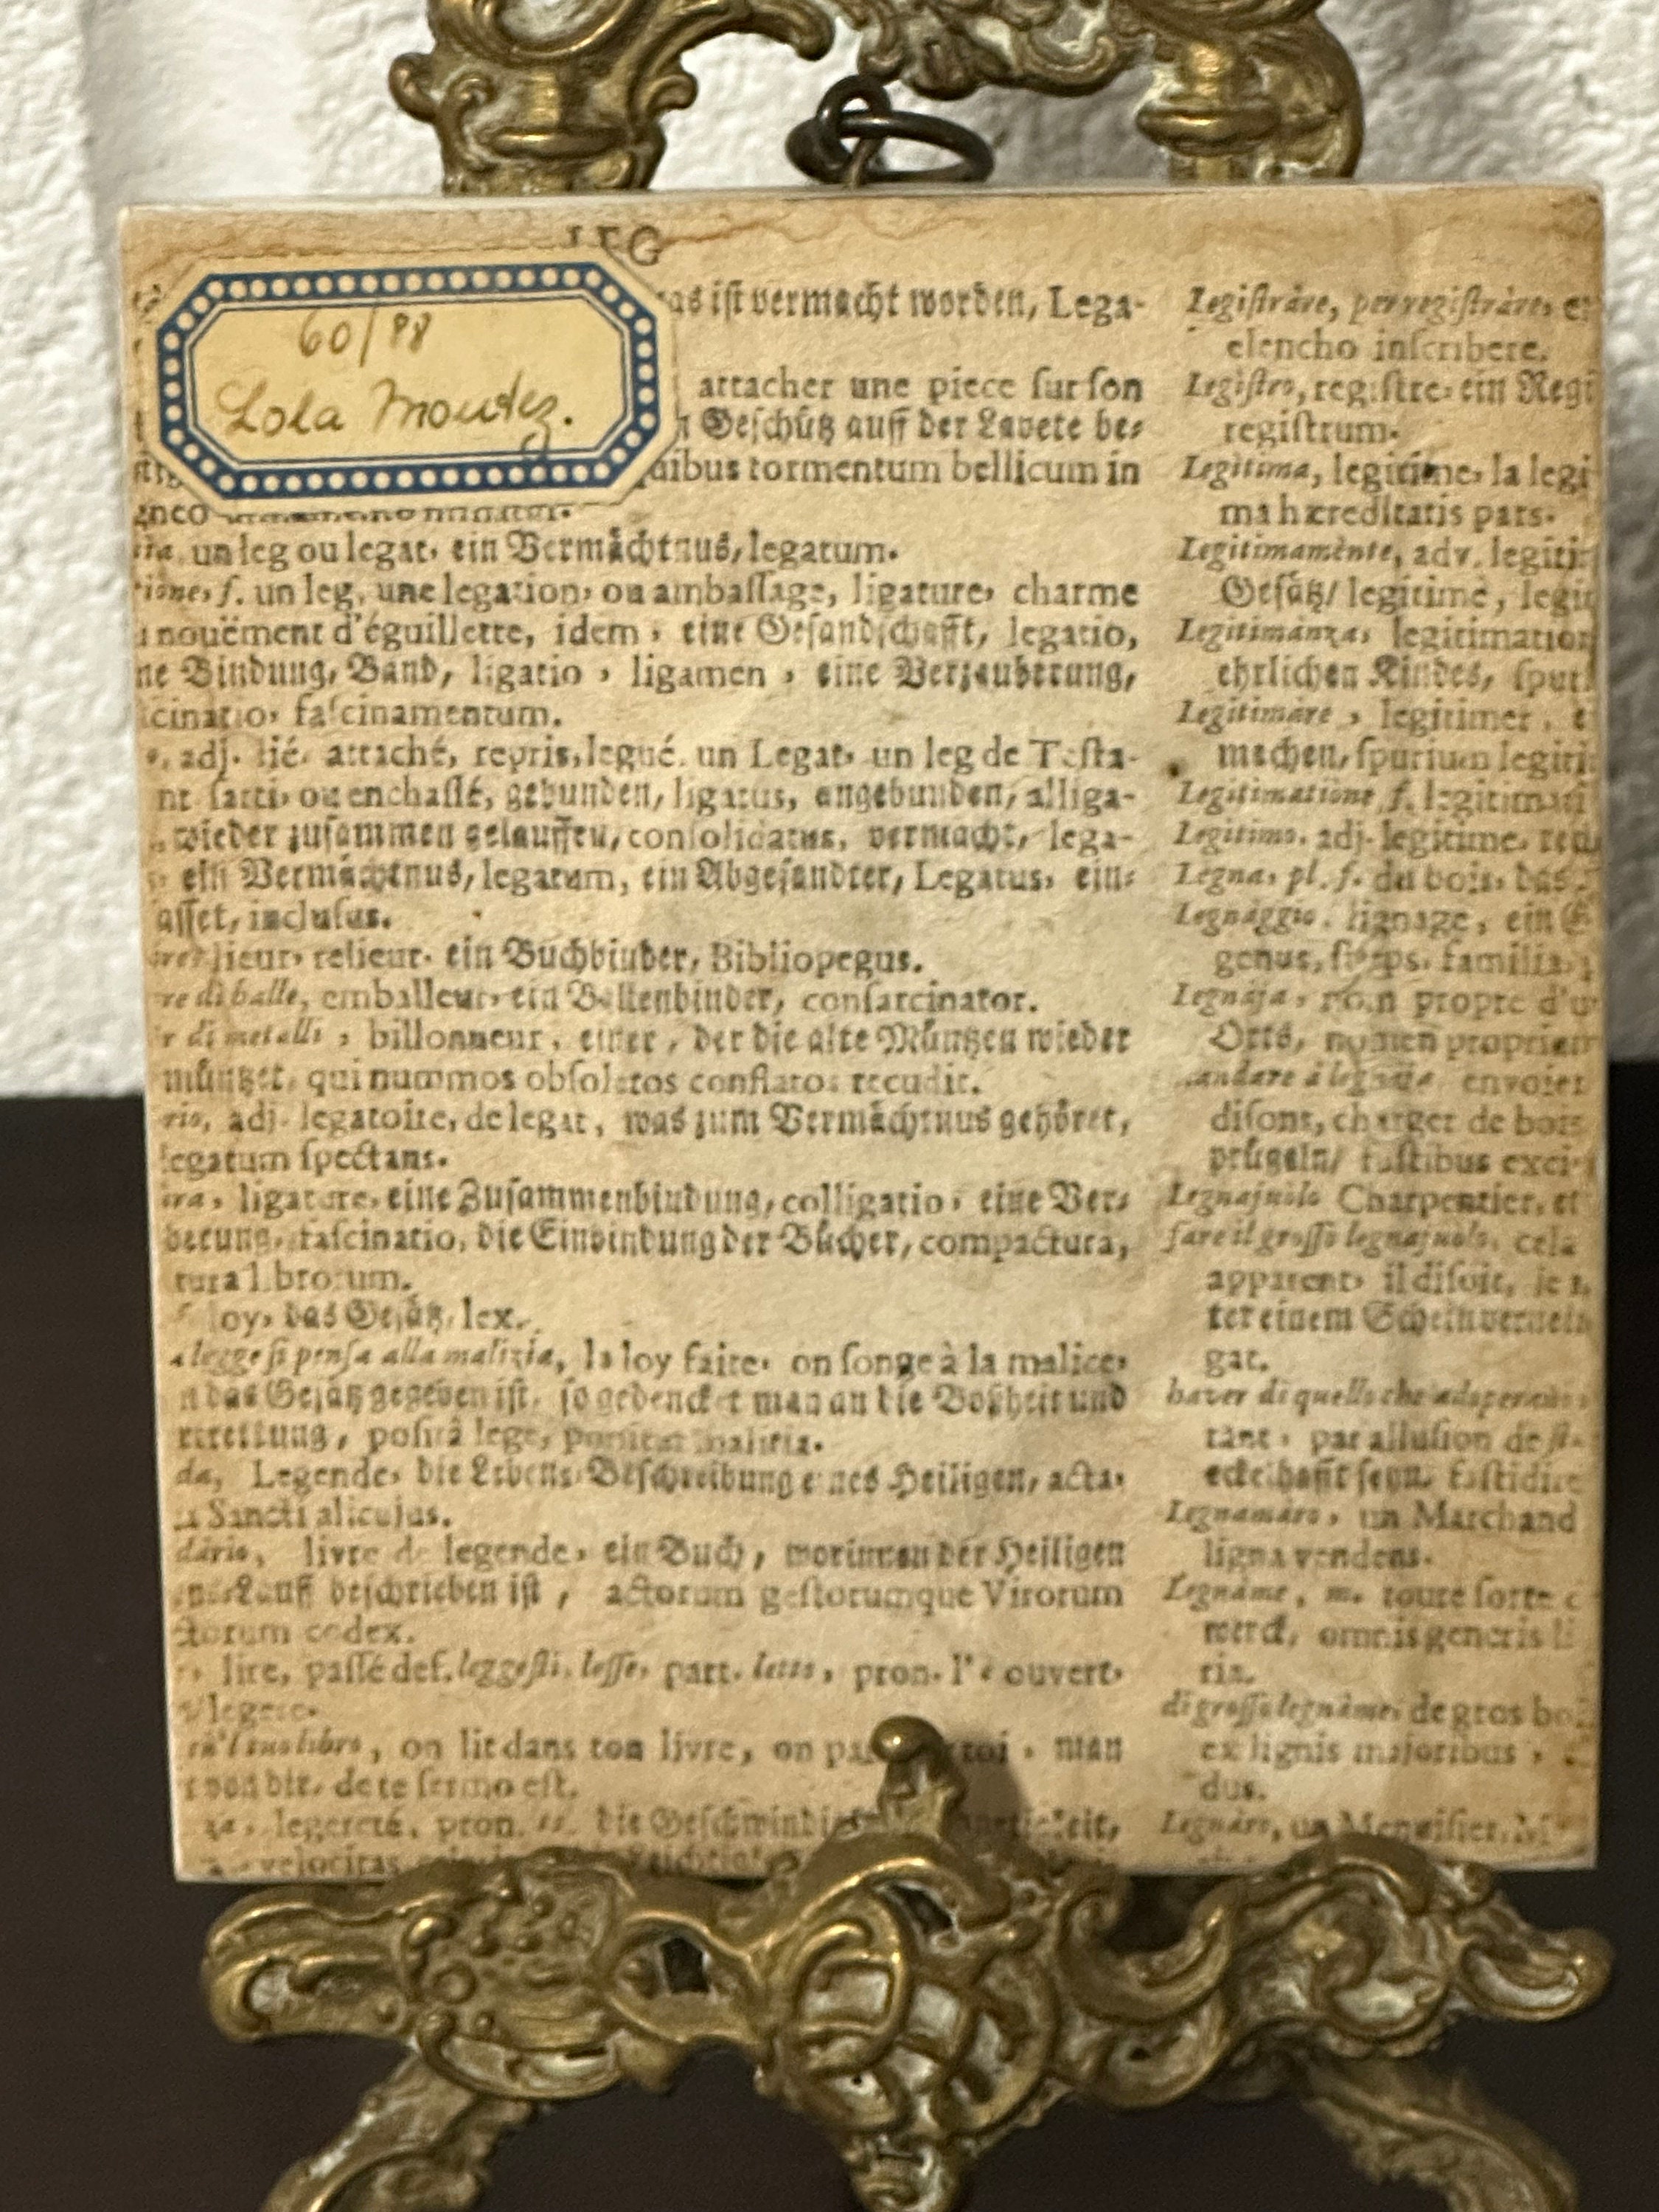 LEG
60/88
Lola Montez.
as ist vermacht worden, Lega-
attacher une piece sur son
Geschütz auff der Lavete be-
quibus tormentum bellicum in
gneo
un leg ou legat, ein Vermächtnus, legatum.
tione, f. un leg, une legation, ou ambassage, ligature, charme
nouëment d'éguillette, idem, eine Gesandschafft, legatio,
ne Bindung, Band, ligatio, ligamen, eine Verzauberung,
cinatio, fascinamentum.
adj. lié, attaché, repris, legué, un Legat, un leg de Testa-
ou enchassé, gebunden, ligatus, angebunden, alliga-
wieder zusammen gelauffen, consolidatus, vermacht, lega-
ein Vermächtnus, legatum, ein Abgesandter, Legatus, ein-
asset, inclusus.
lieur, relieur, ein Buchbinder, Bibliopegus.
re di balle, emballeur, ein Ballenbinder, consarcinator.
r di metalli, billonneur, einer, der die alte Müntzen wieder
müntzet, qui nummos obsoletos conflatos recudit.
rio, adj. legatoire, de legat, was zum Vermächtnus gehöret,
legatum spectans.
ligature, eine Zusammenbindung, colligatio, eine Ver-
berung, fascinatio, die Einbindung der Bücher, compactura,
tura librorum.
loy, das Gesätz, lex.
legge si pensa alla malizia, la loy faite, on songe à la malice,
das Gesätz gegeben ist, so gedencket man an die Boßheit und
positâ lege, malitia.
da, Legende, die Lebens-Beschreibung eines Heiligen, acta
Sancti alicujus.
dário, livre de legende, ein Buch, worinnen der Heiligen
Lauff beschrieben ist, actorum gestorumque Virorum
ctorum codex.
lire, passé def. leggesti, lesse, part. letto, pron. l'e ouvert,
legere.
suo libro, on lit dans ton livre, on toi, man
von dir, de te sermo est.
za, legereté, pron.
velocitas
Legistráre, per registráre,
elencho inscribere.
Legistro, registre, ein Regi
registrum.
Legitima, legitime, la legi
ma hæreditatis pars.
Legitimaménte, adv. legiti
Gesätz/ legitimè, legi
Legitimánza, legitimation
ehrlichen Kindes, spur
Legitimáre, legitimer,
machen, spurium legiti
Legitimatióne, f. legitimati
Legitimo, adj. legitime,
Legna, pl. f. du bois, das
Legnággio, lignage, ein
genus, stirps, familia,
Legnája, nom propre d'u
Orts, nomen proprium
andare à legnáia, envoier
disons, charger de bois
prügeln/ fustibus exci
Legnajuólo Charpentier, et
fare il grosso legnajuolo, cela
apparent, il disoit, je
ter einem Schein verneh
gat.
haver di quello che
tant, par allusion de
eckelhafft seyn, fastidire
Legnamáro, un Marchand
ligna vendens.
Legnáme, m. toute sorte
werck, omnis generis li
ria.
di grosso legnáme, de gros bo
ex lignis majoribus,
dus.
Legnáro, un Menuisier,